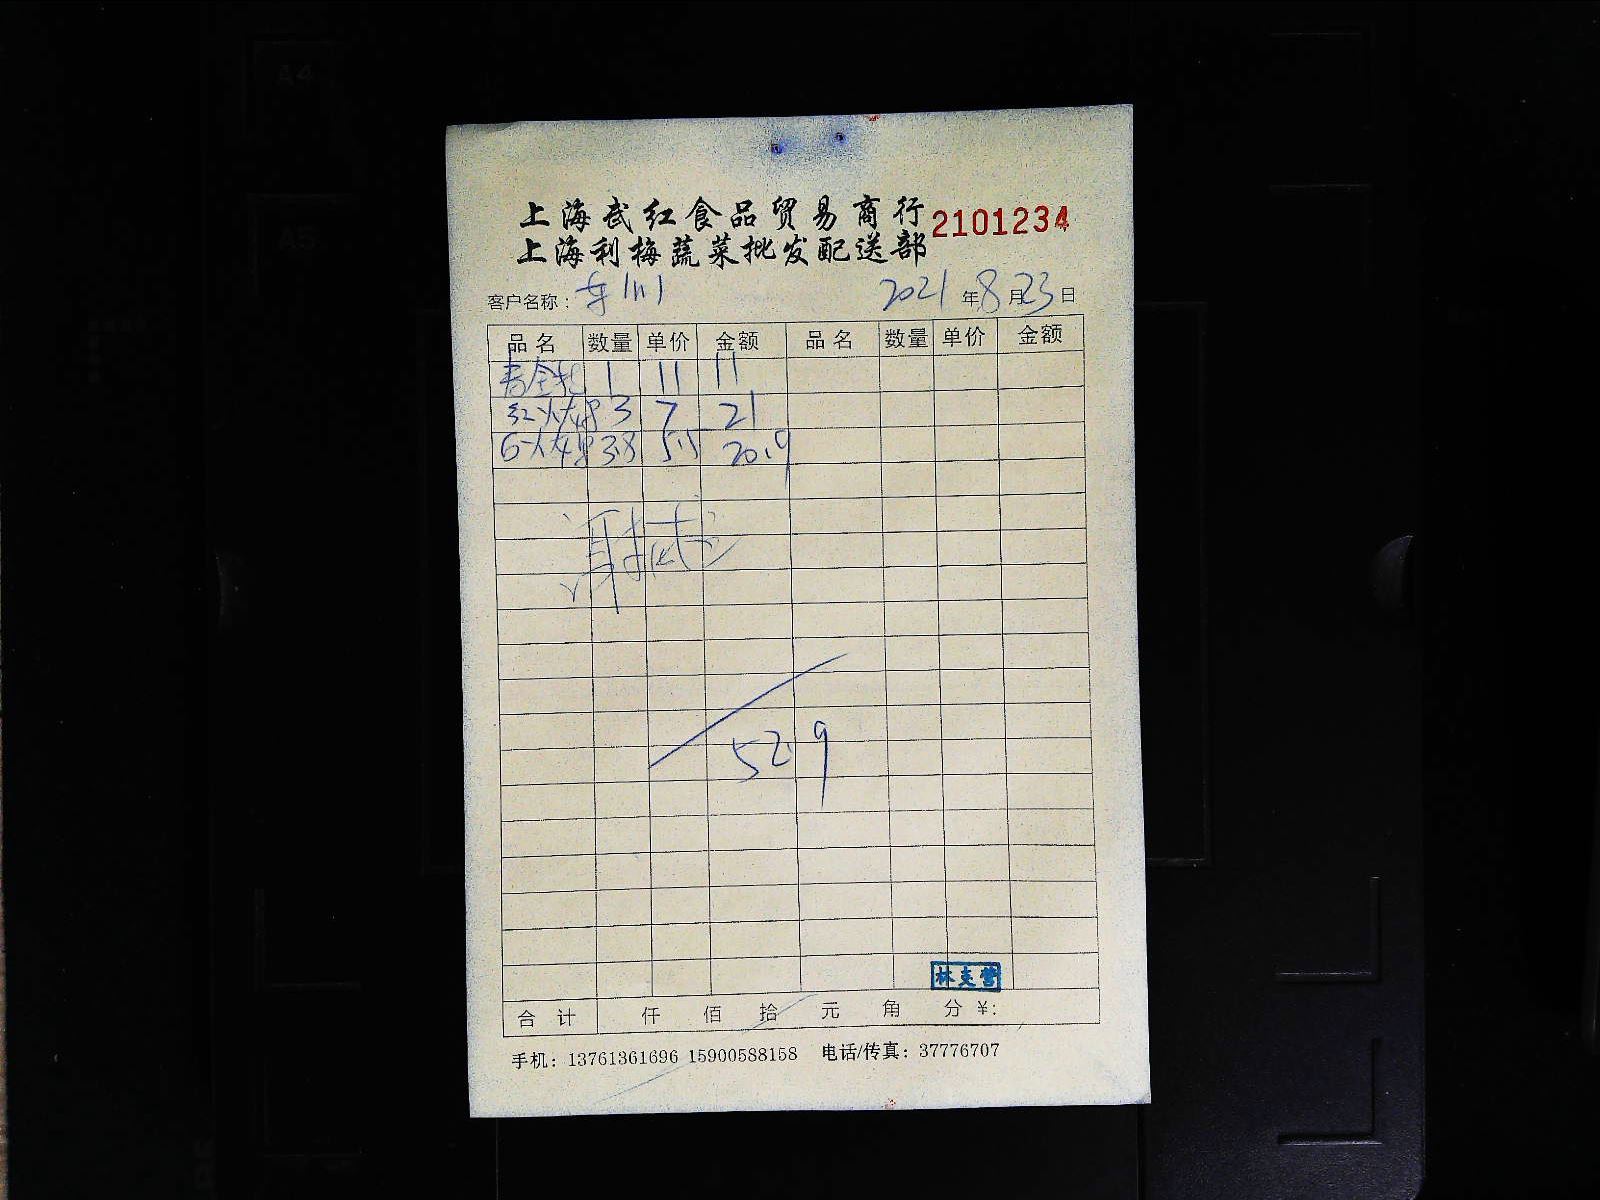 上海武红食品贸易商行 2101234
上海利梅蔬菜批发配送部
客户名称: 2021年8月23日
品名 数量 单价 金额 品名 数量 单价 金额
1 11 11
3 7 21
3.8 5.5 20.9
52.9
林克营
合计 仟 佰 拾 元 角 分 ¥:
手机: 13761361696 15900588158 电话/传真: 37776707